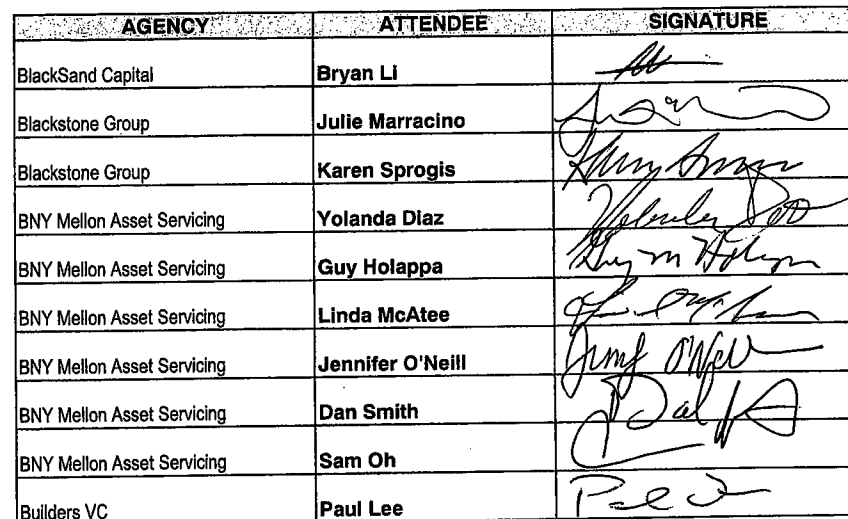 AGENCY ATTENDEE SIGNATURE
BlackSand Capital Bryan Li
Blackstone Group Julie Marracino
Blackstone Group Karen Sprogis
BNY Mellon Asset Servicing Yolanda Diaz
BNY Mellon Asset Servicing Guy Holappa Guy M Holappa
BNY Mellon Asset Servicing Linda McAtee
BNY Mellon Asset Servicing Jennifer O'Neill
BNY Mellon Asset Servicing Dan Smith
BNY Mellon Asset Servicing Sam Oh
Builders VC Paul Lee